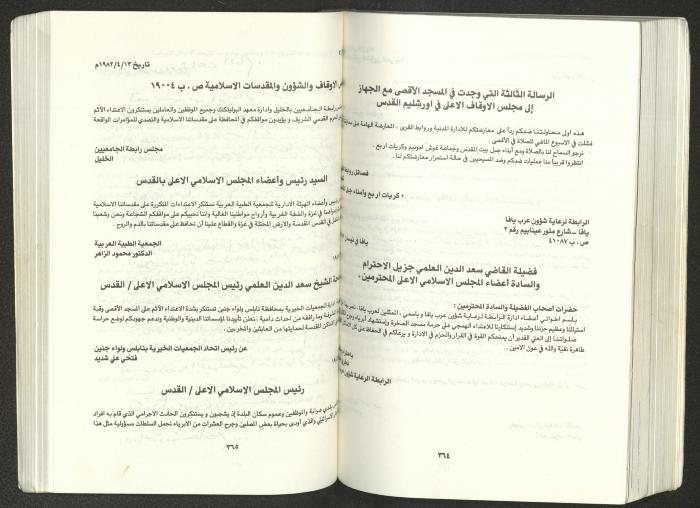 الرسالة الثالثة التي وجدت في المسجد الأقصى مع الجهاز
إلى مجلس الاوقاف الاعلى في اورشليم القدس
هذه اولى محاولتنا ضدكم رداً على معارضتكم للادارة المدنية وروابط القرى ، المعارضة الهامة على
فشلت في الاسبوع الماضي للصلاة في الأقصى .
نرجو السماح لنا بالصلاة ومع أبناء جبل بيت المقدس وجماعة غوش امونيم وكريات اربع .
انتظروا قريباً منا عمليات ضدكم وضد المسيحيين في حالة استمرار معارضتكم لنا .
فصائل روابط
* كريات اربع وأمناء جبل
الرابطة لرعاية شؤون عرب يافا
يافا – شارع منور عينايم رقم ٣
ص . ب ٤١٠٨٧
يافا في نيسان
فضيلة القاضي سعد الدين العلمي جزيل الاحترام
والسادة أعضاء المجلس الاسلامي الاعلى المحترمين .
حضرات أصحاب الفضيلة والسادة المحترمين :
باسم اخواني أعضاء ادارة الرابطة لرعاية شؤون عرب يافا و باسمي ، الممثلين لعرب يافا ،
استيائنا وعظيم حزننا وشديد إستنكارنا للاعتداء الهمجي على حرمة مسجد الصخرة وإستشهاد
صلواتنا إلى العلي القدير أن يمنحكم القوة في القرار والحزم في الادارة و يرعاكم في الحفاظ على
طاهرة نقية والله في عون الامين .
الرابطة لرعاية شؤون
٣٦٤
تاريخ ١٩٨٢/٤/١٣م
الاوقاف والشؤون والمقدسات الاسلامية ص . ب ١٩٠٠٤
رابطة الجامعيين بالخليل وادارة معهد البوليتكنك وجميع الموظفين والعاملين يستنكرون الاعتداء الآثم
القدسي الشريف و يؤيدون مواقفكم في المحافظة على مقدساتنا الاسلامية والتصدي للمؤامرات الواقعة
مجلس رابطة الجامعيين
الخليل
السيد رئيس وأعضاء المجلس الاسلامي الاعلى بالقدس
رئيس وأعضاء الهيئة الادارية للجمعية الطبية العربية نستنكر الاعتداءات المتكررة على مقدساتنا الاسلامية
في غزة والضفة الغربية وأرواح مواطنينا الغالية واننا نحييكم على مواقفكم الشجاعة ونحن وشعبنا
في القدس المقدسة والارض المحتلة في غزة والقطاع علينا أن نحافظ على مقدساتنا بالدم والروح .
الجمعية الطبية العربية
الدكتور محمود الزاهر
الشيخ سعد الدين العلمي رئيس المجلس الاسلامي الاعلى / القدس
الجمعيات الخيرية بمحافظة نابلس ولواء جنين تستنكر بشدة الاعتداء الآثم على المسجد الاقصى وقبة
ومارافقه من احداث دامية ، نعلن تأييدنا لمؤسساتنا الدينية والوطنية وندعم جهودكم لوضع حراسة
المقدسة لحمايتها من العابثين والمخربين .
عن رئيس اتحاد الجمعيات الخيرية بنابلس ولواء جنين
فتحي علي شديد
رئيس المجلس الاسلامي الاعلى / القدس
بلدي عرابة والموظفين وعموم سكان البلدة إذ يشجبون و يستنكرون الحادث الاجرامي الذي قام به افراد
والذي أودى بحياة بعض المصلين وجرح العشرات من الابرياء نحمل السلطات مسؤولية مثل هذا
٣٦٥